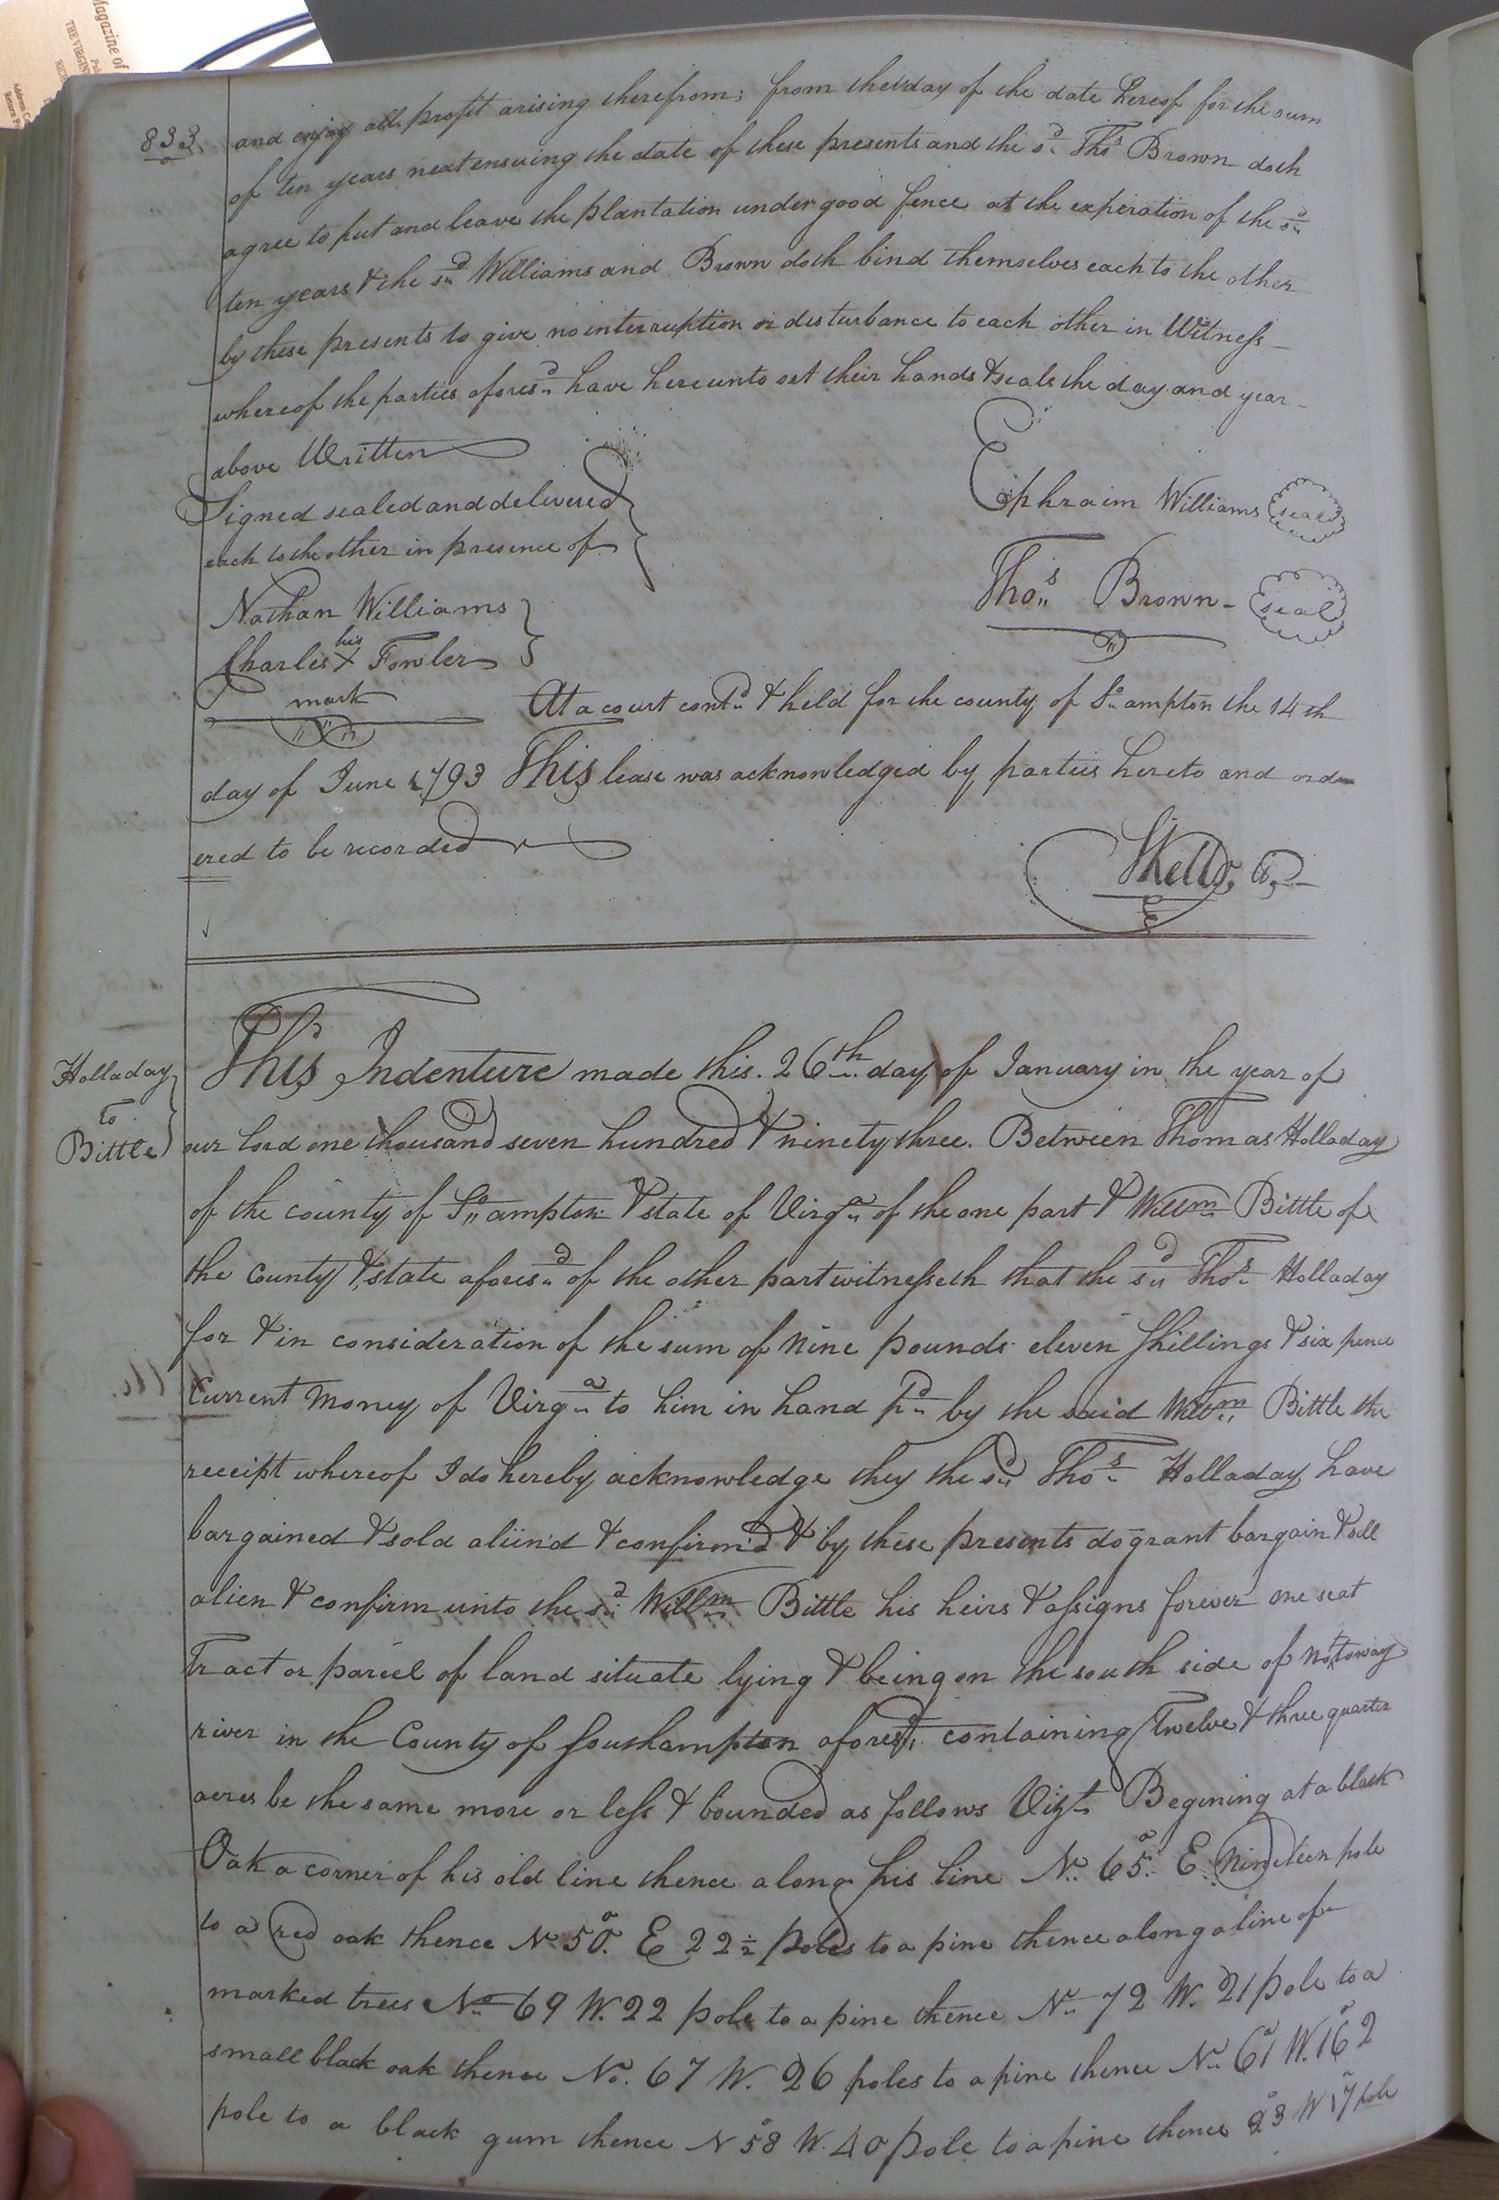 Magazine of
THE VIRGIN
833.
and enjoy all profit arising therefrom; from the day of the date hereof for the sum
of ten years next ensuing the date of these presents and the sd. Thos Brown doth
agree to put and leave the plantation under good fence at the experation of the sd
ten years & the sd Williams and Brown doth bind themselves each to the other
by these presents to give no interruption or disturbance to each other in Witness
whereof the parties aforesd have hereunto set their hands & seals the day and year
above Written
Signed sealed and delivered
each to the other in presence of
Ephraim Williams seal
Thos Brown seal
Nathan Williams
his
Charles X Fowler
mark
At a court contd & held for the county of So ampton the 14th
day of June 1793 This lease was acknowledged by parties hereto and ord
ered to be recorded
Holladay
to
Bittle
This Indenture made this 26th day of January in the year of
our lord one thousand seven hundred & ninety three. Between Thomas Holladay
of the county of So ampton & state of Virga of the one part & Willm Bittle of
the County & state aforesd of the other part witnesseth that the sd Thos Holladay
for & in consideration of the sum of Nine pounds eleven shillings & six pence
Current Money of Virga to him in hand pd by the said Willm Bittle the
receipt whereof I do hereby acknowledge they the sd Thos Holladay have
bargained & sold aliind & confirm'd & by these presents do grant bargain & sell
alien & confirm unto the sd Willm Bittle his heirs & assigns forever one seat
Tract or parcel of land situate lying & being on the south side of Nottoway
river in the County of Southampton aforesd, containing Twelve & three quarter
acres be the same more or less & bounded as follows Vizt Begining at a black
Oak a corner of his old line thence along his line No. 65o E Nineteen pole
to a red oak thence No 50o. E 22 1/2 poles to a pine thence along a line of
marked trees No 69 W. 22 pole to a pine thence No 72 W. 21 pole to a
small black oak thence No. 67 W. 26 poles to a pine thence No 61o W. 16o 2
pole to a black gum thence N 58o W. 40 pole to a pine thence 23o W 17 pole